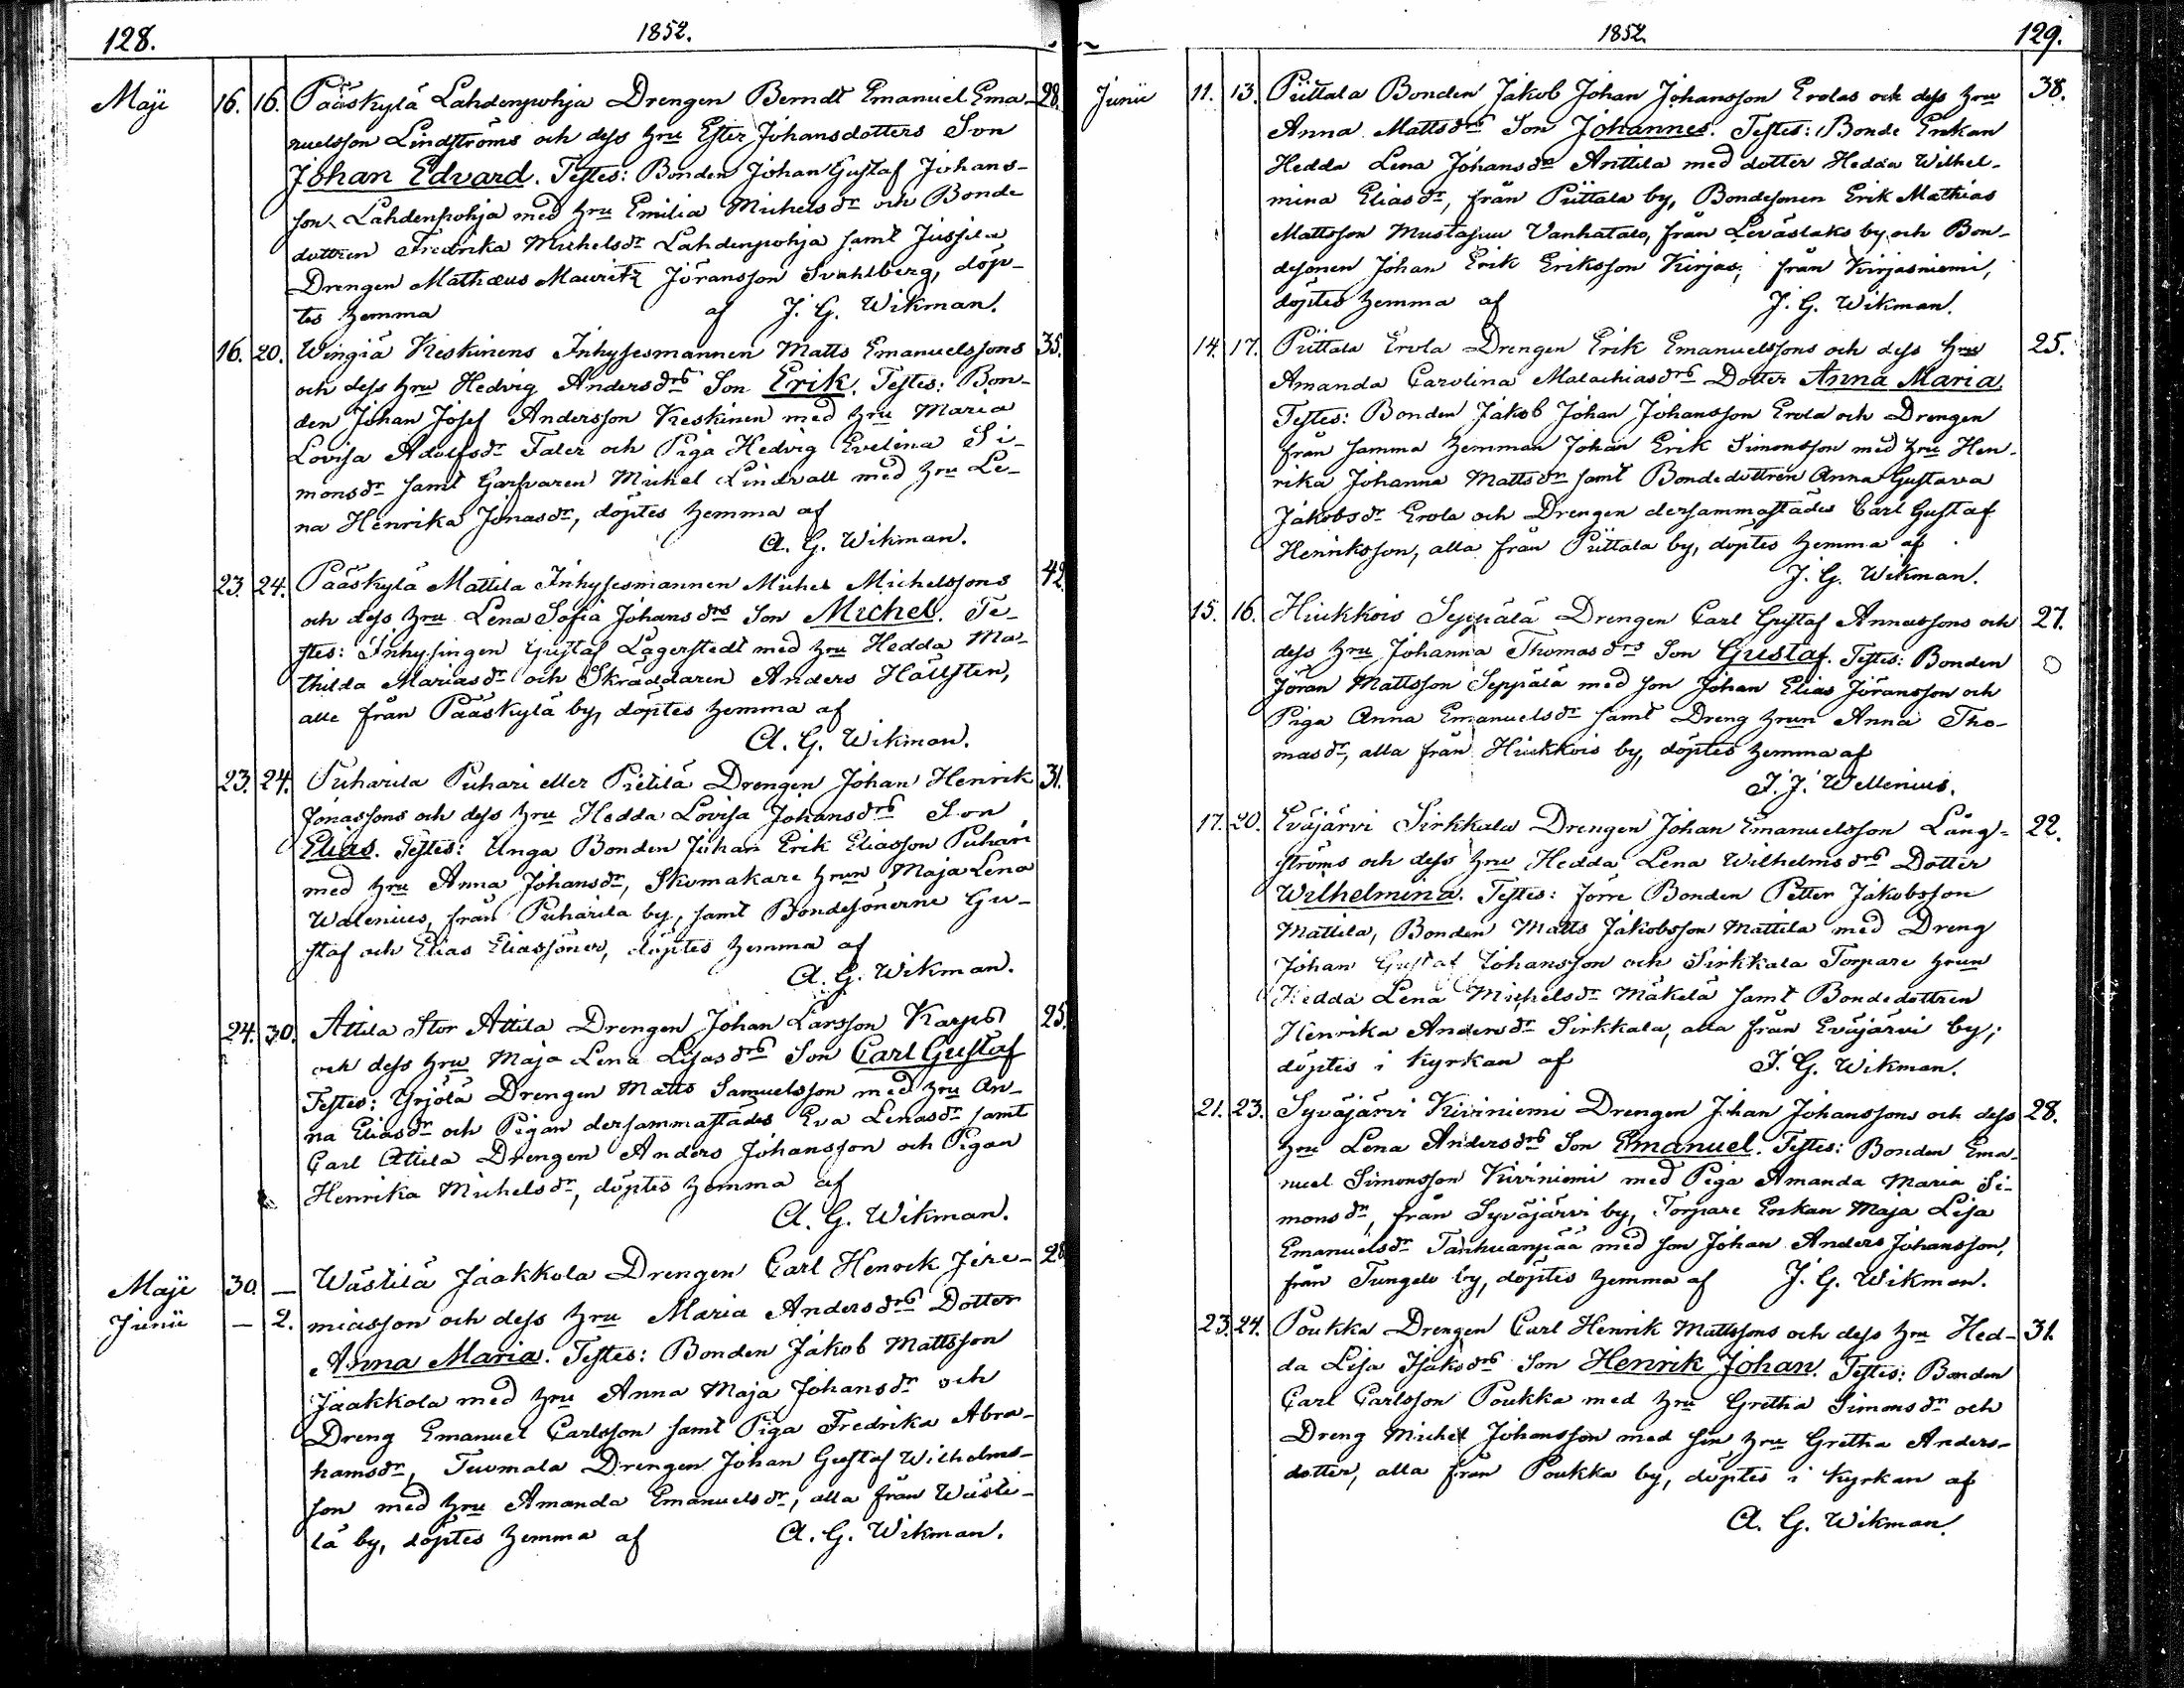 128. 1852.
Maji 16. 16. Pääskylä Lahdenpohja Drengen Berndt Emanuel Ema- 28.
nuelsson Lindströms och dess hru Ester Johansdotters Son
Johan Edvard. Testes: Bonden Johan Gustaf Johans-
son Lahdenpohja med hru Emilia Michelsdr och Bonde
dottren Fredrika Michelsdr Lahdenpohja samt Jussila
Drengen Mathæus Mauritz Jöransson Svahlberg, döp-
tes hemma af J. G. Wikman.
16. 20. Wingiä Keskinens Inhysesmannen Matts Emanuelssons 35.
och dess hru Hedvig Andersdrs Son Erik. Testes: Bon-
den Johan Josef Andersson Keskinen med hru Maria
Lovisa Adolfsdr Faler och Piga Hedvig Evelina Si-
monsdr samt Garfvaren Michel Lindvall med hru Le-
na Henrika Jonasdr, döptes hemma af
A. G. Wikman.
23. 24. Pääskylä Mattila Inhysesmannen Michel Michelssons 42
och dess hru Lena Sofia Johansdrs Son Michel. Te-
stes: Inhysingen Gustaf Lagerstedt med hru Hedda Ma-
thilda Mariasdr och Skräddaren Anders Hällsten,
alle från Pääskylä by, döptes hemma af
A. G. Wikman.
23. 24. Puharila Puhari eller Pietilä Drengen Johan Henrik 31.
Jonassons och dess hru Hedda Lovisa Johansdrs Son
Elias. Testes: Unga Bonden Johan Erik Eliasson Puhari
med hru Anna Johansdr, Skomakare hrun Maja Lena
Walenius, från Puharila by, samt Bondesönerne Gu-
staf och Elias Eliassöner, döptes hemma af
A. G. Wikman.
24. 30. Attila Stor Attila Drengen Johan Larsson Karps 25.
och dess hru Maja Lena Lisasdrs Son Carl Gustaf
Testes: Yrjölä Drengen Matts Samuelsson med hru An-
na Eliasdr och Pigan dersammastädes Eva Lenasdr samt
Carl Attila Drengen Anders Johansson och Pigan
Henrika Michelsdr, döptes hemma af
A. G. Wikman.
Maji 30. — Wästilä Jaakkola Drengen Carl Henrik Jere- 28
Junii — 2. miasson och dess hru Maria Andersdrs Dotter
Anna Maria. Testes: Bonden Jakob Mattsson
Jaakkola med hru Anna Maja Johansdr och
Dreng Emanuel Carlsson samt Piga Fredrika Abra-
hamsdr, Tuomala Drengen Johan Gustaf Wilhelms-
son med hru Amanda Emanuelsdr, alla från Wästi-
lä by, döptes hemma af A. G. Wikman.
1852. 129.
Junii 11. 13. Püttala Bonden Jakob Johan Johansson Erolas och dess hru 38.
Anna Mattsdrs Son Johannes. Testes: Bonde Enkan
Hedda Lena Johansdr Anttila med dotter Hedda Wilhel-
mina Eliasdr, från Püttala by, Bondesonen Erik Mathias
Mattsson Mustajuu Vanhatalo, från Leväslaks by och Bon-
desonen Johan Erik Eriksson Kirjas, från Kirjasniemi,
döptes hemma af J. G. Wikman.
14. 17. Püttala Erola Drengen Erik Emanuelssons och dess hru 25.
Amanda Carolina Malachiasdrs Dotter Anna Maria.
Testes: Bonden Jakob Johan Johansson Erola och Drengen
från samma hemman Johan Erik Simonsson med hru Hen-
rika Johanna Mattsdr samt Bondedottren Anna Gustava
Jakobsdr Erola och Drengen dersammastädes Carl Gustaf
Henriksson, alla från Püttala by, döptes hemma af
J. G. Wikman.
15. 16. Hiukkois Seppälä Drengen Carl Gustaf Annassons och 27.
dess hru Johanna Thomasdrs Son Gustaf. Testes: Bonden
Jöran Mattsson Seppälä med son Johan Elias Jöransson och
Piga Anna Emanuelsdr samt Dreng hrun Anna Tho-
masdr, alla från Hiukkois by, döptes hemma af
J. J. Wellenius.
17. 20. Eväjärvi Sirkkala Drengen Johan Emanuelsson Lång- 22.
ströms och dess hru Hedda Lena Wilhelmsdrs Dotter
Wilhelmina. Testes: förre Bonden Petter Jakobsson
Mattila, Bonden Matts Jakobsson Mattila med Dreng
Johan Gustaf Johansson och Sirkkala Torpare hrun
Hedda Lena Michelsdr Mäkelä samt Bondedottren
Henrika Andersdr Sirkkala, alla från Eväjärvi by;
döptes i Kyrkan af J. G. Wikman.
21. 23. Syväjärvi Kiviniemi Drengen Johan Johanssons och dess 28.
hru Lena Andersdrs Son Emanuel. Testes: Bonden Ema-
nuel Simonsson Kiviniemi med Piga Amanda Maria Si-
monsdr, från Syväjärvi by, Torpare Enkan Maja Lisa
Emanuelsdr Tanhuanpää med son Johan Anders Johansson,
från Tungelo by, döptes hemma af J. G. Wikman.
23. 24. Poukka Drengen Carl Henrik Mattssons och dess hru Hed- 31.
da Lisa Isaksdrs Son Henrik Johan. Testes: Bonden
Carl Carlsson Poukka med hru Gretha Simonsdr och
Dreng Michel Johansson med sin hru Gretha Anders-
dotter, alla från Poukka by, döptes i Kyrkan af
A. G. Wikman.